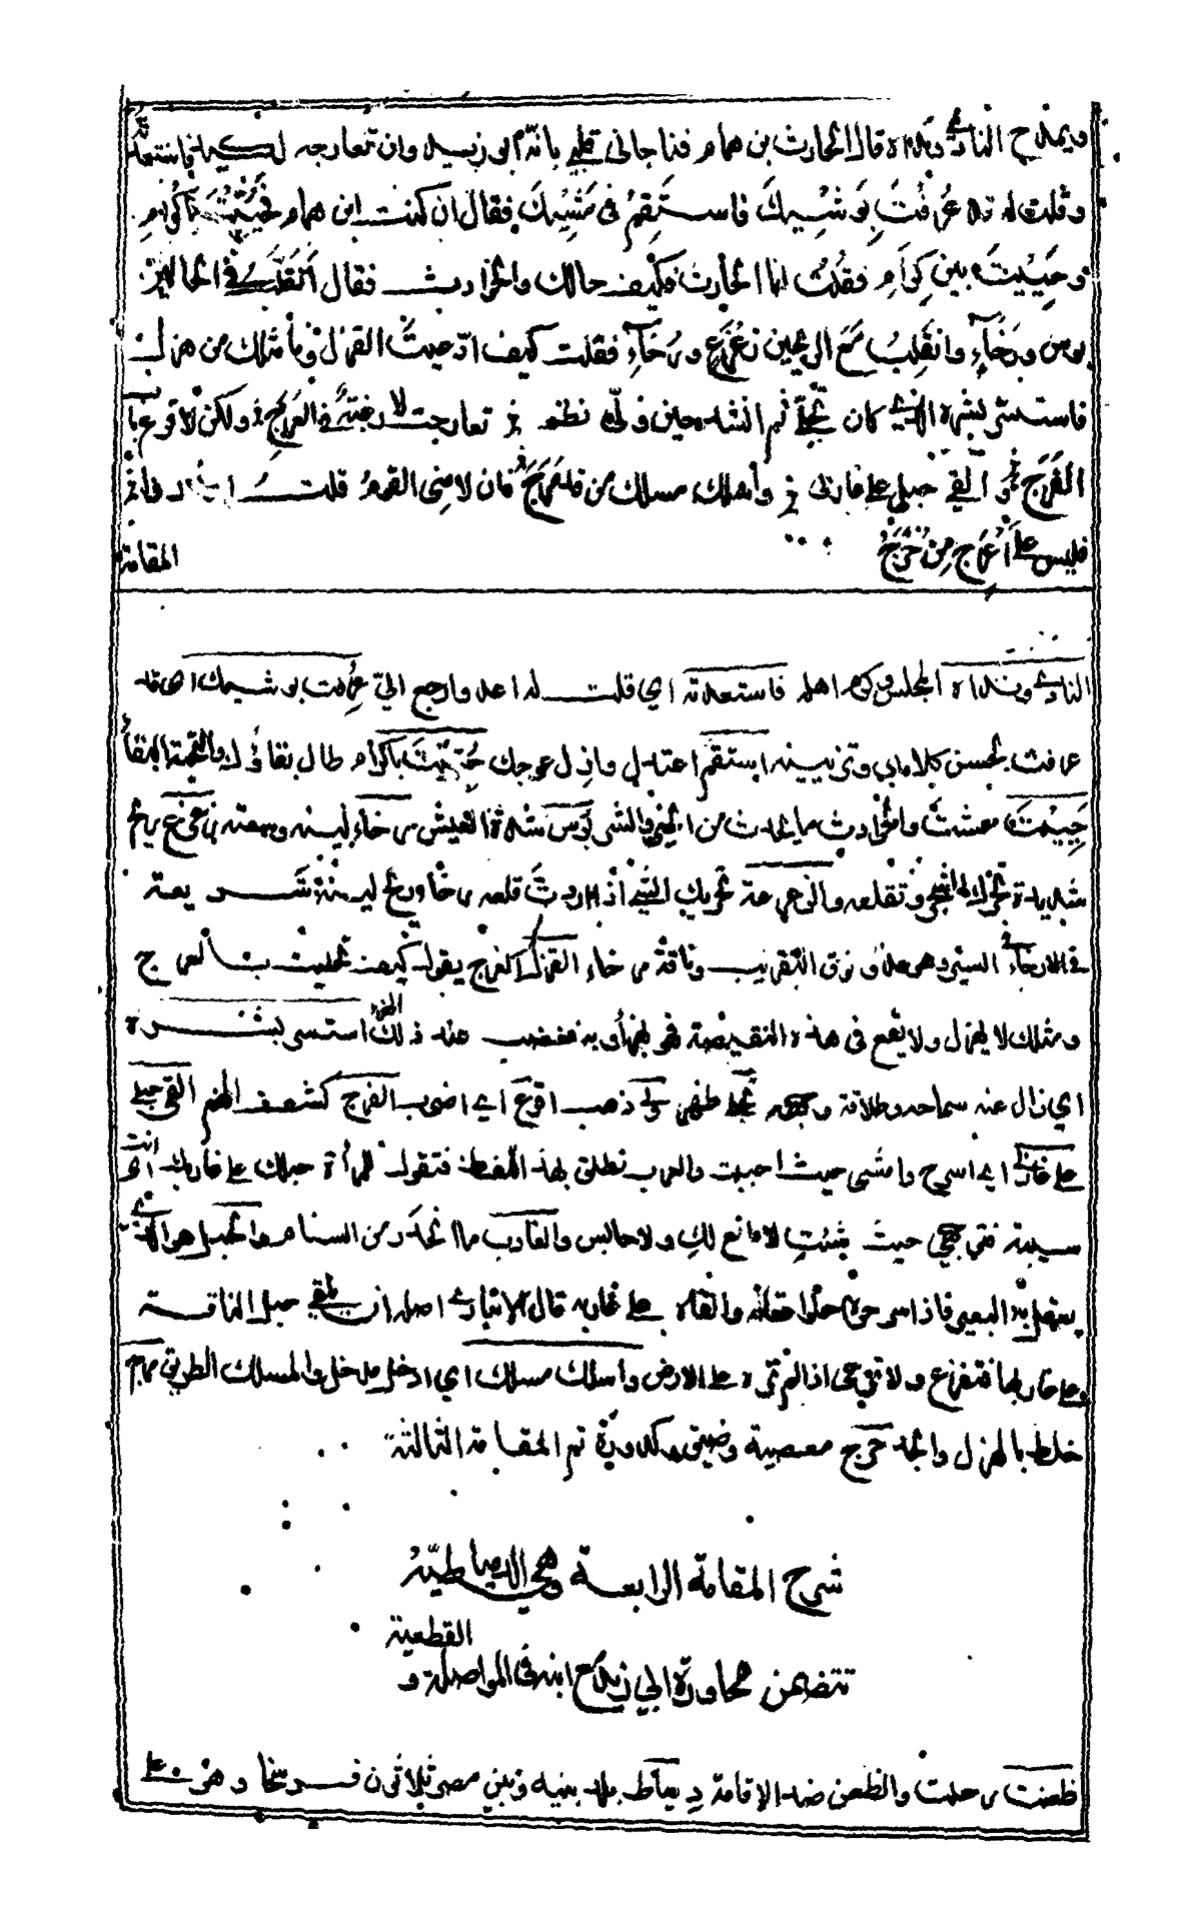 ويمدح النادي ونداه قال الحارث بن همام فناجاني قلبي بانه ابو زيد وان تعارجه لكيد فاستعدته
وقلت له قد عرفت بوشيك فاستقم في مشيك فقال ان كنت ابن همام فحييت باكرام
وحييت بين كرام فقلت انا الحارث فكيف حالك والحوادث فقال اتقلب في الحالين
بوس ورخاء وانقلب مع الريحين زعزع ورخاء فقلت كيف ادعيت القزل وما مثلك من هزل
فاستسر بشره الذي كان تجلى ثم انشد حين ولى نظم تعارجت لا رغبة في العرج ولكن لاقرع باب
الفرج والقي حبلي على غاربي واسلك مسلك من قد مرج فان لامني القوم قلت اعذروا
فليس على اعرج من حرج
المقامة
النادي ونداه المجلس وكرم اهله فاستعدته اي قلت له اعد وارجع الي عرفت بوشيك اي قد
عرفت بحسن كلامك وتزيينه استقم اعتدل وازل عوجك حييت باكرام طال بقاؤك والتحية البقاء
حييت عشت والحوادث ما يحدث من الخير والشر بوس شدة العيش رخاء لينه وسعته زعزع ريح
شديدة تحرك الشجر وتقلعه والزعزعة تحريك الشيء اذا اردت قلعه رخاء ريح لينة سريعة
الارخاء السير وهو دون التقريب وناقة مرخاء القزل العرج يقول كيف تحليت بالعرج
ومثلك لا يهزل ولا يقع في هذه النقيصة فهو يهزأ به فغضب عند ذلك استسر بشره
اي زال عنه سماحه وطلاقة وجهه تجلى ظهر ولى ذهب اقرع اي اضرب الفرج كشف الهم القي حبلي
على غاربي اي اسرح وامشي حيث احببت والعرب تطلق بهذا اللفظ فتقول للمرأة حبلك على غاربك اي انت
سيبة فتوجهي حيث شئت لا مانع لك ولا حابس والغارب ما انحدر من السنام والحبل هو الذي
يعقل به البعير فاذا سرحوه حلوا عقاله والقاه على غاربه قال الانباري اصله ان يلقى حبل الناقة
على غاربها فتفزع ولا ترعى اذا لم تره على الارض واسلك مسلك اي ادخل مدخل والمسلك الطريق مرج
خلط بالهزل والجد حرج معصية وضيق تم المقامة الثالثة
شرح المقامة الرابعة وهي الدمياطية
تتضمن محاورة ابي زيد مع ابنه في المواصلة و القطعية
ظعنت رحلت والظعن ضد الاقامة دمياط بلد بينه وبين مصر ثلاثون فرسخا وهو على